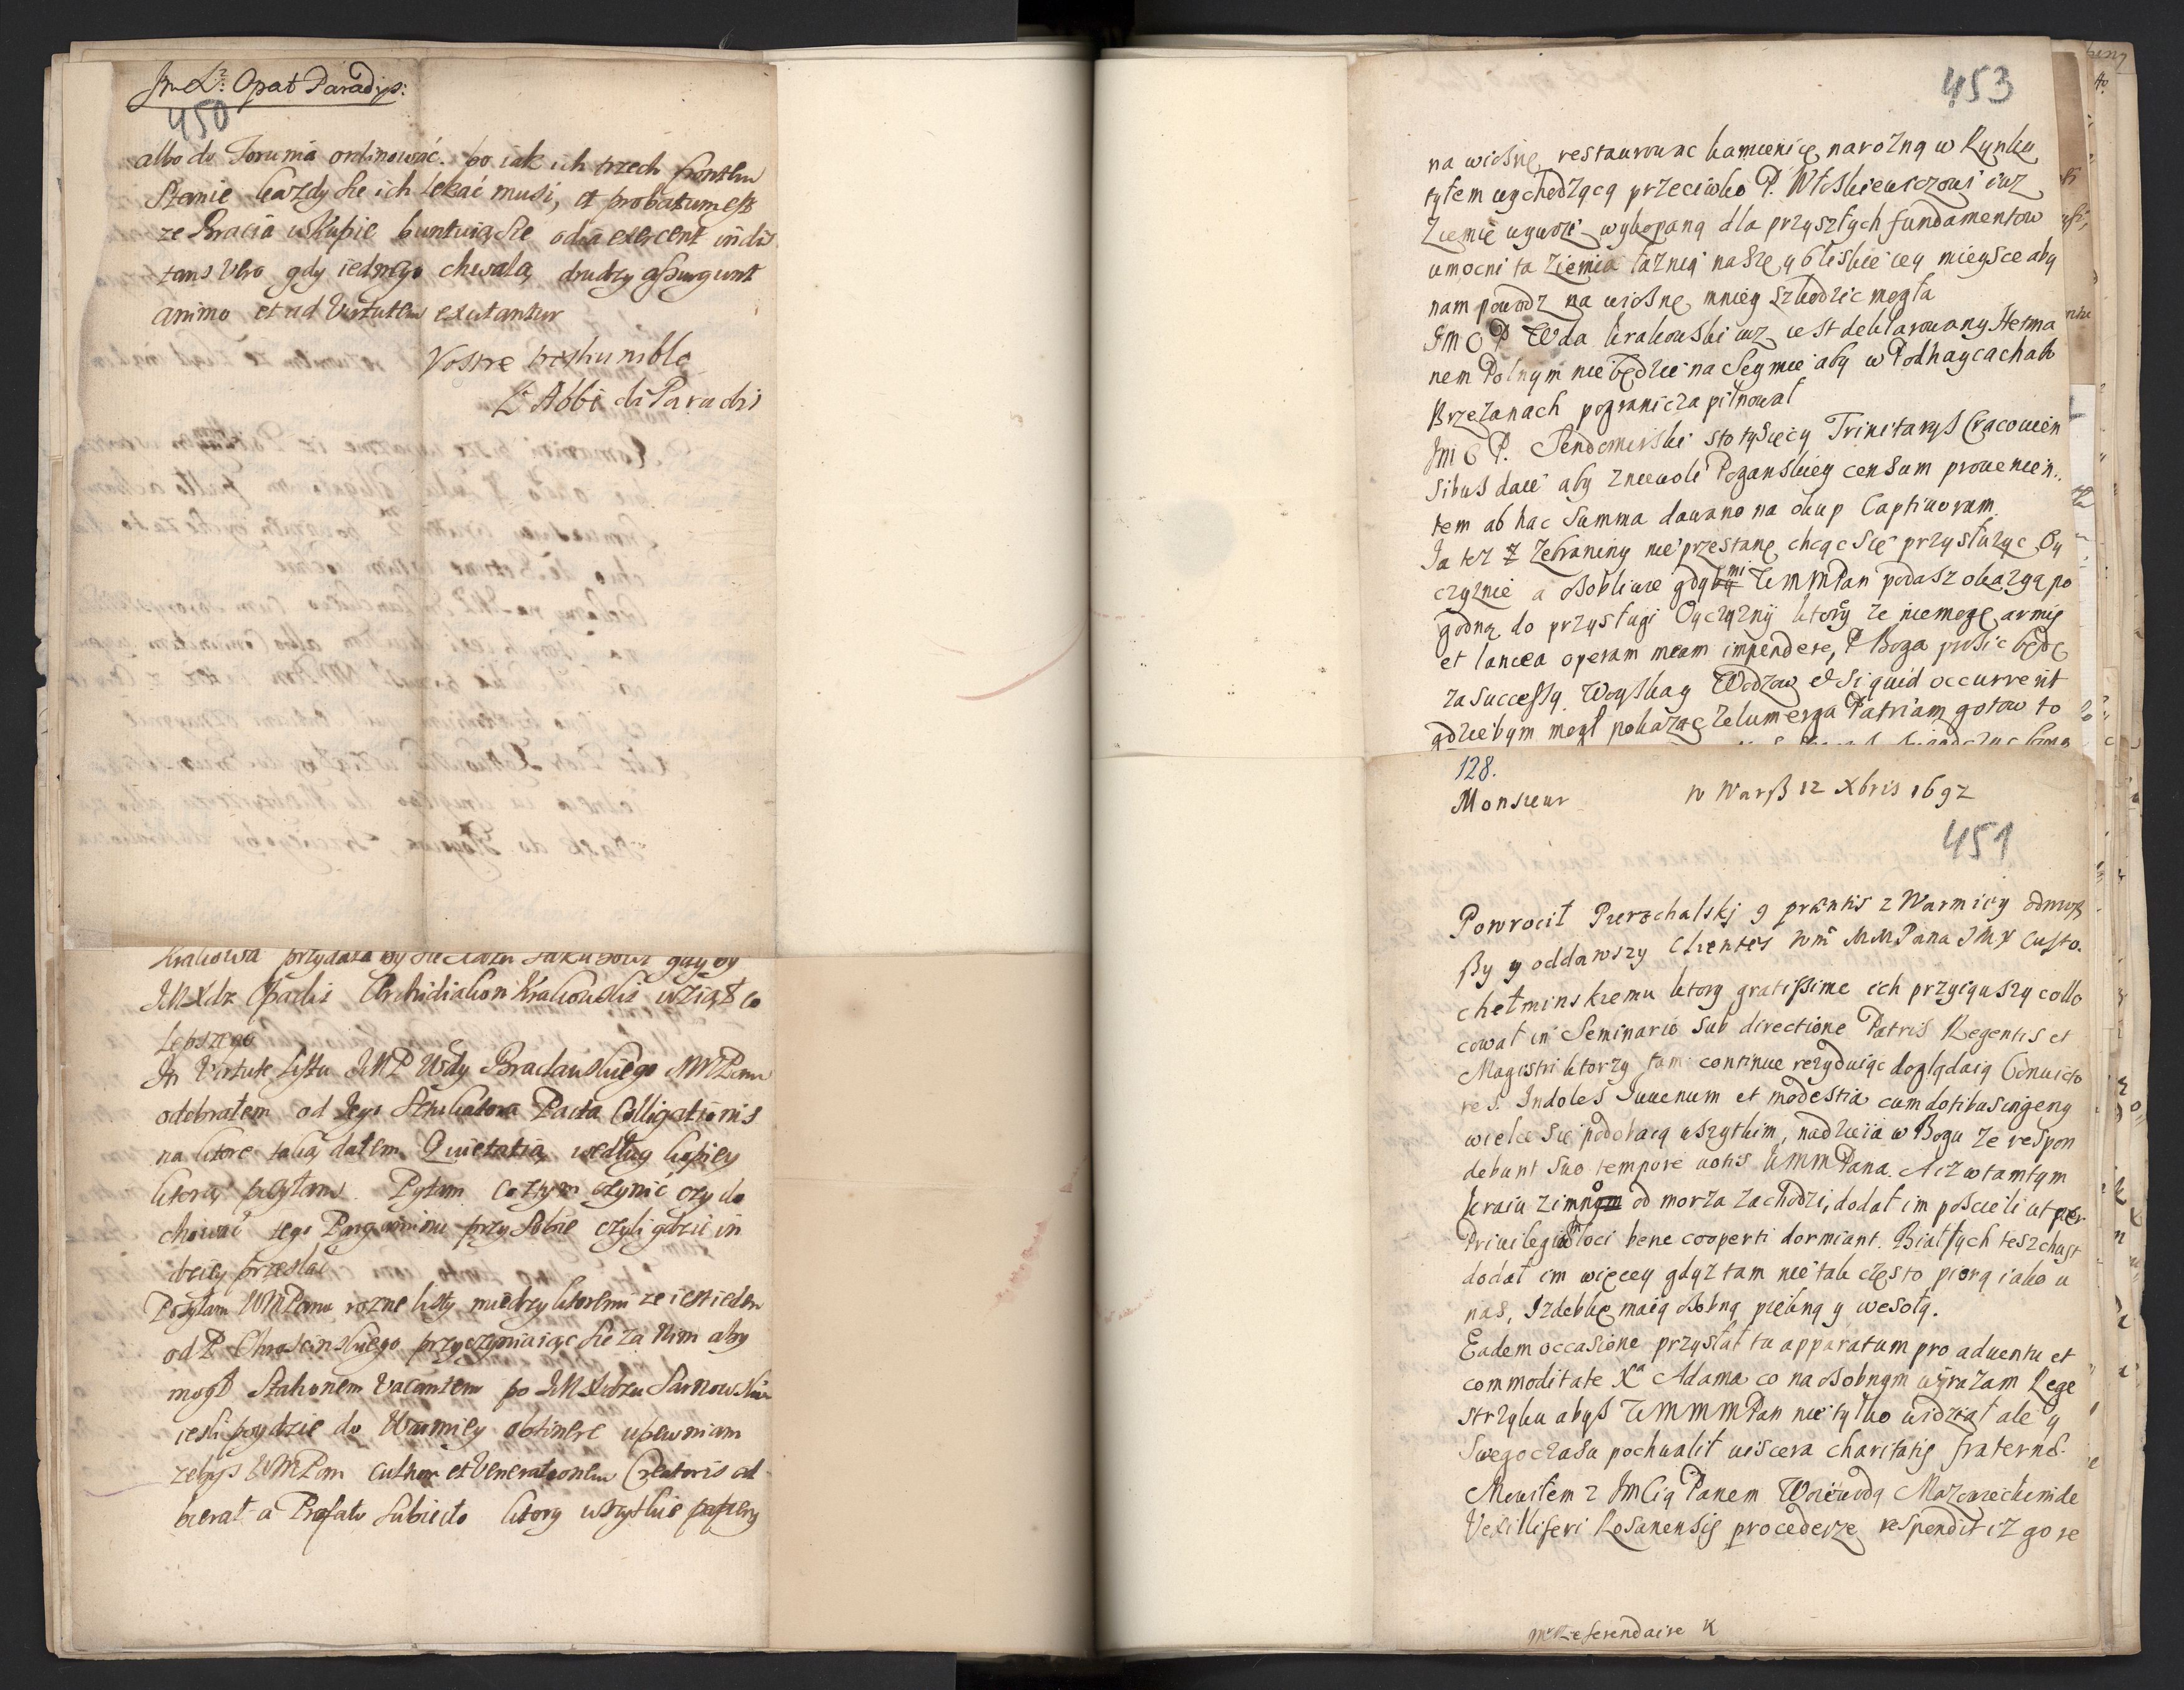 Jmć X: Opat Paradys:
450
albo do Torunia ordinować. bo iak ich trzech frontem
Stanie kazdy sie ich lękać musi, et probatum est
ze Bracia wkupie buntuią sie odia exercent in dis
tans Vero gdy iednego chwalą drudzy assurgunt
animo et ad Virtutem excitantur
Vostre tres humble
L'Abbé de Paradis
Krakowa przydało by sie gdy by
JMXdz Opacki Archidiakon Krakowski wziął co
Lepszego
In Virtute Listu JMP Wdy Bracławskiego MMPana
odebrałem od Jego Pacta Colligationis
na ktore taką dałem Quietatią według kopiey
ktorą posyłam. Pytam co z tym czynić czy do
chować tego Pargaminu przy sobie czyli gdzie in
dziey przesłać
Posyłam WMPanu rozne listy między ktoremi ze iest ieden
od P Chroscinskiego przyczyniaiąc sie za Nim aby
mogł Stationem Vacantem po JMXdzu Sarnowskim
iesli poydzie do Warmiey obtinere upewniam
zebys WMPan cultum et Venerationem Creatoris od
bierał a Præfato subiecto ktory wszytkie papiery
453
na wiosnę restaurowac kamienicę narozną w Rynku
tyłem wychodzącą przeciwko P. Wloskiewiczowi iuz
Ziemię wywozi wykopaną dla przyszłych fundamentow
umocni ta ziemia łaznią naszę y bliskie iey mieysce aby
nam powodz na wiosnę mniey szkodzic mogła
JmO P Wda krakowski iuz iest deklarowany Hetma
nem Polnym nie będzie na Seymie aby w Podhaycach alb
Brzezanach pogranicza pilnował
Jm O P. Sendomirski sto tysięcy Trinitarys Cracovien
sibus daie aby z niewoli Poganskiey censum provenien..
tem ab hac Summa dawano na okup Captivorum
Ja tez z Zebraniny nie przestanę chcąc się przysłuzyc Oy
czyznie a osobliwie gdy mi WMMPan podasz okazyą po
godną do przysługi Oyczyznij ktory ze niemogę armis
et lancea operam meam impendere, P Boga prosic będę
za successy Woyska y Wodzow et si quid occurrerit
gdziebym mogł pokazac Zelum erga Patriam gotow to
128.
Monsieur w Warß 12 Xbris 1692
451
Powrocił Pierzchalskj 9 præntis z Warmiey odniosß
ßy y oddawszy Clientes Wm MMPana JMX Custo.
chełminskiemu ktory gratissime ich przyiąwszy collo
cował in Seminario sub directione Patris Regentis et
Magistri ktorzy tam continue rezyduiąc doglądaią Convicto
res. Indoles Juvenum et modestia cum dotibus ingeny
wielce się podobaią wszytkim, nadzieia w Bogu ze respon
debunt suo tempore votis WMMPana. A iz w tamtym
kraiu zimno od morza zachodzi, dodał im poscieli ut per
Privilegium loci bene cooperti dormiant. Białych tesz chust
dodał im więcey gdyz tam nie tak często piorą iako u
nas, Izdebkę maią osobną piekną y wesołą.
Eadem occasione przysłał tu apparatum pro adventu et
commoditate Xa Adama co na osobnym wyrazam Rege
strzyku abys WMMMPan nie tylko widział ale y
swego czasu pochwalił viscera charitatis fraternæ.
Mowiłem z JmCią Panem Woiewodą Mazowieckim de
Vexilliferi Rosanensis procederze respondit iz go re
Mr Referendaire K